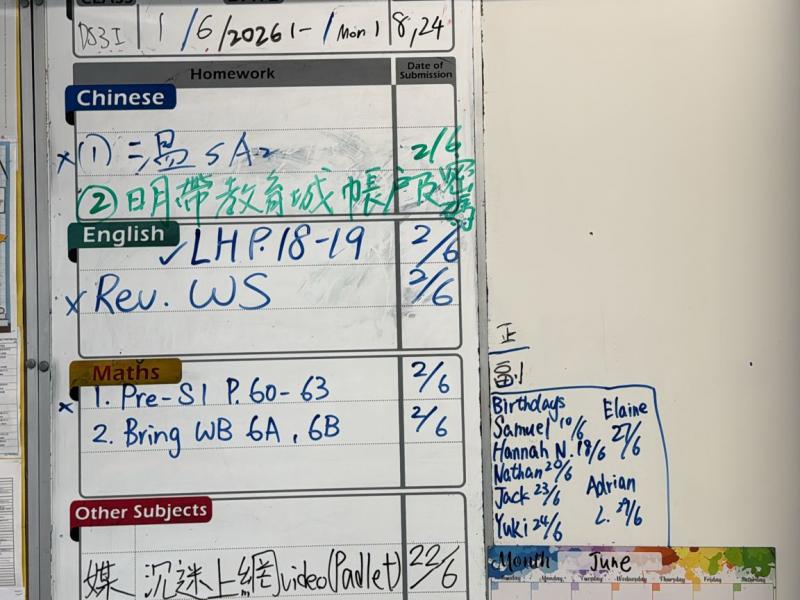 DS3I 1/6/2026 1-/Mon) 8,24
Homework Date of Submission
Chinese
x① 溫 SA2 2/6
② 明帶教育城帳户及密碼
English
✓ LH P.18-19 2/6
x Rev. WS 2/6
Maths
x 1. Pre-S1 P.60-63 2/6
2. Bring WB 6A, 6B 2/6
Other Subjects
媒 沉迷上網video(Padlet) 22/6
正
副
Birthdays
Samuel 10/6
Hannah N. 18/6
Nathan 20/6
Jack 23/6
Yuki 24/6
Elaine 27/6
Adrian L. 29/6
Month June
Sunday Monday Tuesday Wednesday Thursday Friday Saturday